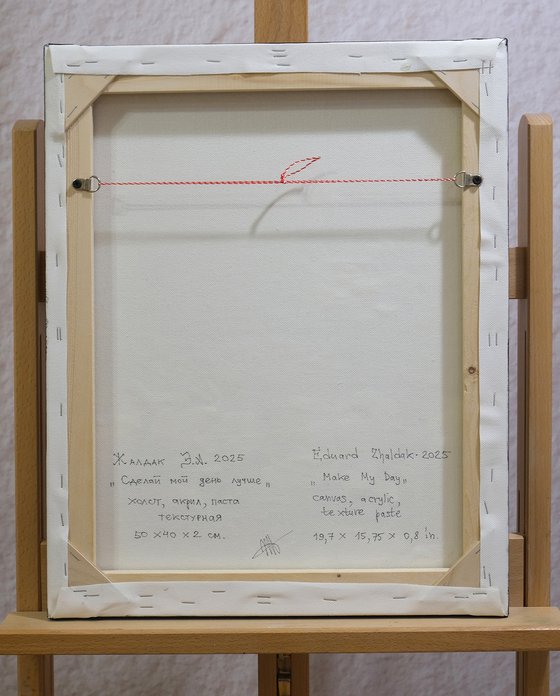 Жалдак Э.А. 2025
„Сделай мой день лучше„
холст, акрил, паста
текстурная
50 х40 х 2 см.
Eduard Zhaldak. 2025
„Make My Day„
canvas, acrylic,
texture paste
19,7 х 15,75 х 0,8 in.